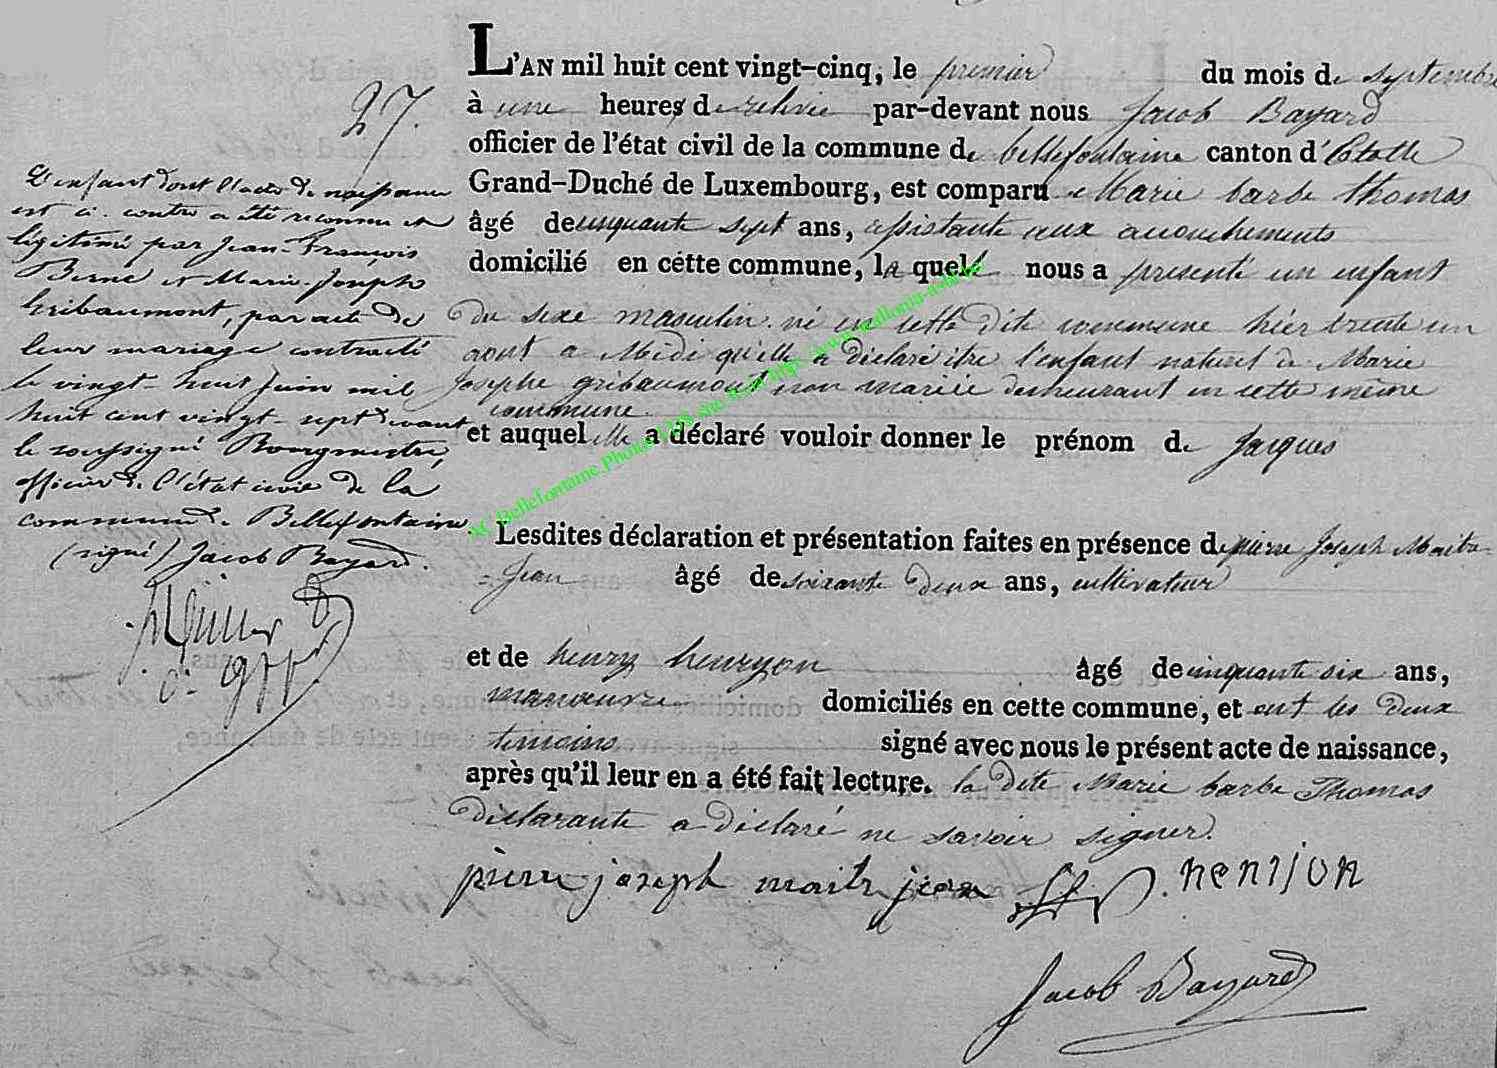 27.
L'enfant dont l'acte de naissance
est ci-contre a été reconnu et
légitimé par Jean-François
Berne et Marie-Joseph
Gribaumont, par acte de
leur mariage contracté
le vingt-huit Juin mil
huit cent vingt-sept devant
le soussigné Bourgmestre,
officier de l'état civil de la
commune de Bellefontaine
(signé) Jacob Bayard.
L'AN mil huit cent vingt-cinq, le premier du mois de septembre
à une heures de relevée par-devant nous Jacob Bayard
officier de l'état civil de la commune de bellefontaine canton d'Etalle
Grand-Duché de Luxembourg, est comparu Marie barbe thomas
âgé de cinquante sept ans, assistante aux accouchements
domicilié en cette commune, laquelle nous a presenté un enfant
du sexe masculin né en cette dite commune hier trente un
aout a Midi qu'elle a déclaré être l'enfant naturel de Marie
Josephe gribaumont non mariée demeurant en cette même
commune
et auquel elle a déclaré vouloir donner le prénom de Jacques
AC Bellefontaine Photo
Lesdites déclaration et présentation faites en présence de pierre Joseph Maitre-
-Jean âgé de soixante deux ans, cultivateur
et de henry henryon âgé de cinquante six ans,
manoeuvre domiciliés en cette commune, et ont les deux
temoins signé avec nous le présent acte de naissance,
après qu'il leur en a été fait lecture. la dite Marie barbe Thomas
declarante a déclaré ne savoir signer.
pierre joseph maitre jean henrion
Jacob Bayard